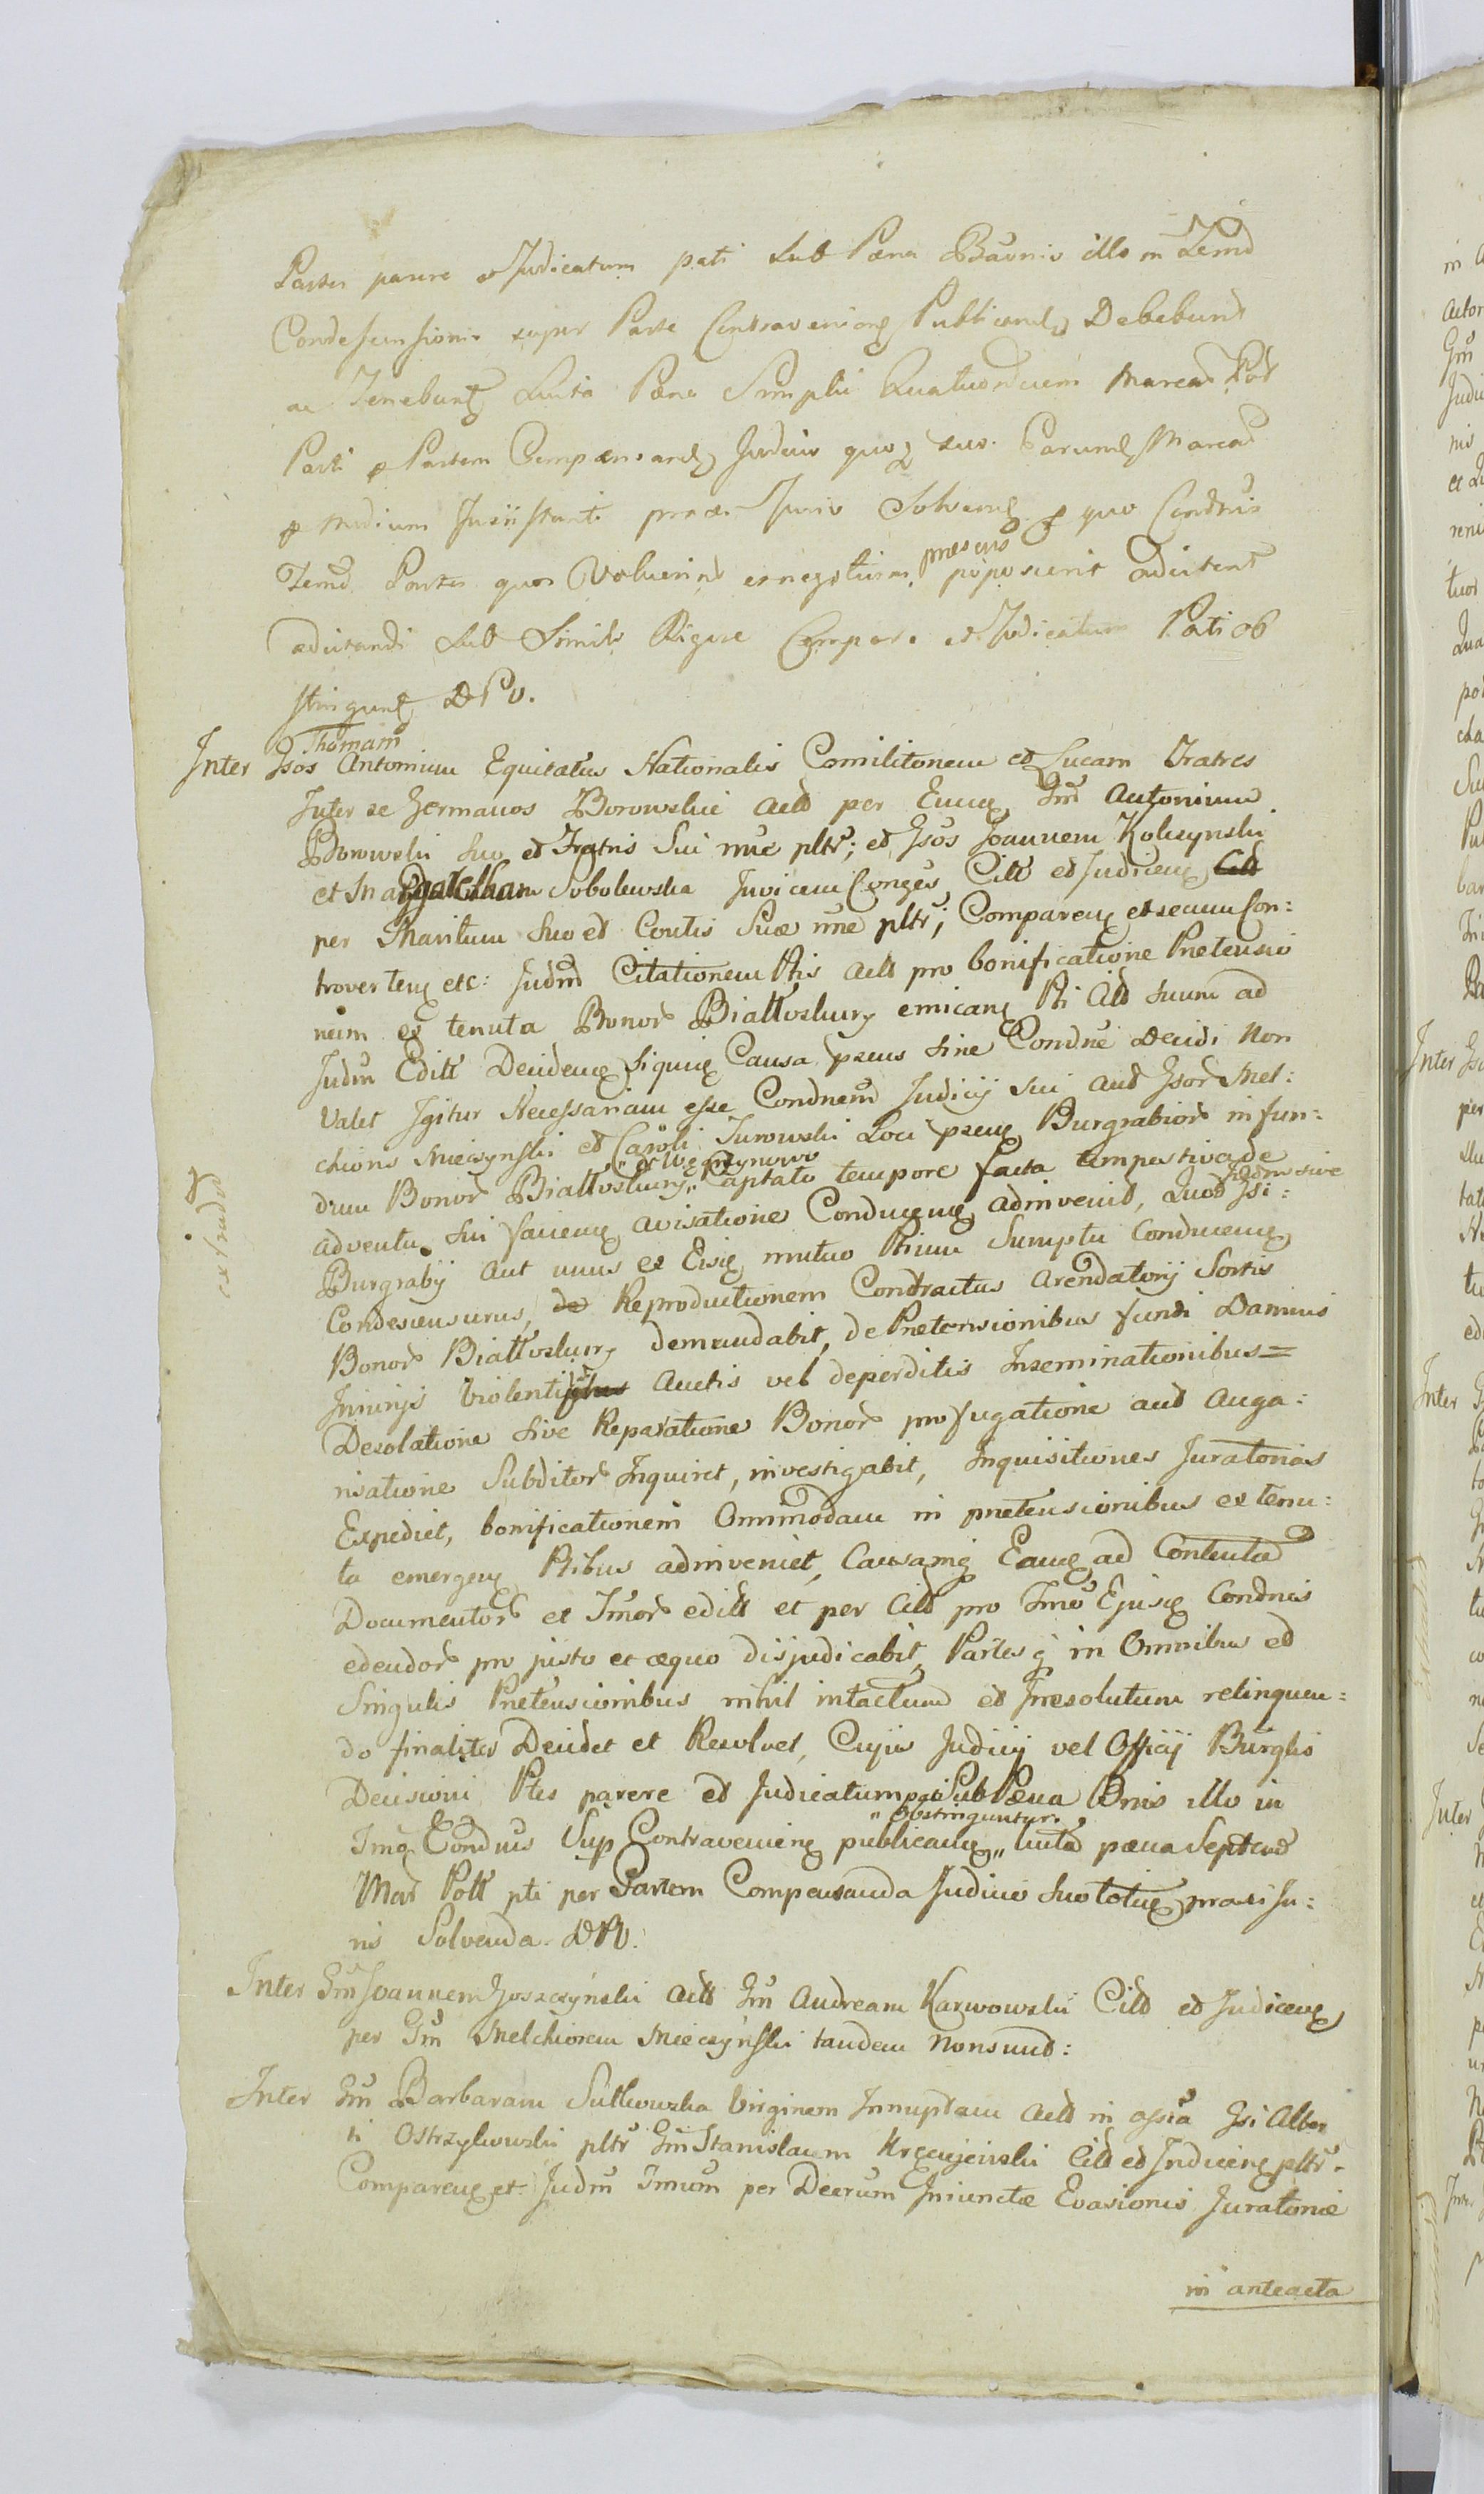 Partes parere et Judicatum pati sub Pœna Bãnnis illo in Termd
Condescensionis super Parte Contravenien Publicand Debebunt
ac Tenebunt Luita Pœna Simpli Quatuordecim Marcar Pol
Parti per Partem Compensand Judicio quoq suo Parum Marcar
per medium Jurii stanti præcis Juris Solvend quo Condnis
Termd Partes quos Voluerint et negotium præsens poposcerit aducent
aducendi sub Simili Rigore Compar. et Judicatum Pati ob
stringunt DPV.
Thomam
Inter Gsos Antonium Equitatus Nationalis Comilitonem et Lucam Fratres
Inter se Germanos Borowskie Actt per Eunq Gm Antonium
Borowski suo et Fratris Sui nne pltr; et Gsos Joannem Kolczynski
et Magdalenam Sobolewska Invicem Conges Citt et Judicem
per Maritum suo et Contis Suæ nne pltr; Comparen et secum Con:
troverten etc: Judm Citationem Ptis Actt pro bonificatione Prætensio
num ex tenuta Bonor Biattoskury emican Pti Citt suum ad
Judm Editt Deciden Siquiq Causa præns sine Condne Decidi Non
Valet Igitur Necessariam esse Condnem Judicij sui aut Gsor Mel:
chioris Mieczynski et Caroli Turowski Loci præns Burgrabior in fun:
dum Bonor Biattoskury „et Węgrzynowo„ Captato tempore facta tempestiva de
adventu sui facien avisatione Conducen adinvenit, Quod Judm sive Gsi:
Burgrabij aut unus ex Eisq mutuo Ptium Sumptu Conducen
Condescensurus, Reproductionem Contractus Arendatorij Sortis
Bonor Biattoskury demandabit, de Prætensionibus fundi Damnis
Injurijs Violentijs Auctis vel deperditis Inseminationibus =
Desolatione sive Reparatione Bonor profugatione aut Auga:
risatione Subditor Inquiret, investigabit, Inquisitiones Juratorias
Expediet, bonificationem Ommodam in prætensionibus ex tenu:
ta emergen Ptibus adinveniet, Causamq Eamq ad Contenta
Documentor et Jmor editt et per Citt pro Tmo Ejusq Condnis
edendor pro justo et æquo disjudicabit, Partes q in Omnibus et
Singulis Prætensionibus nihil intactum et Irresolutum relinquen:
do finaliter Decidet et Resolvet, Cujus Judicij vel Officij Burghis
Decisioni Ptes parere et Judicatum pati Sub Pæna Bnis illo in
Tmo Condnis Sup Contravenien publican „obstringuntur„ luita pæna Septem
Mar Poll pti per Partem Compensanda Judicio suo totiq præcis Ju:
ris Solvenda. DPV.
Inter Gm Joannem Goszczynski Actt Gm Andream Karwowski Citt et Judicen
per Gm Melchiorem Mieczynski tandem Nonsunt:
Inter Gm Barbaram Sutkowska Virginem Innuptam Actt in assia Gsi Alber
ti Ostrzykowski pltr Gm Stanislaum Krzewjewski Citt et Judicen pltr.
Comparen et Judm Tmum per Decrum Iniunctæ Evasionis Juratoriæ
in anteacta
extradit